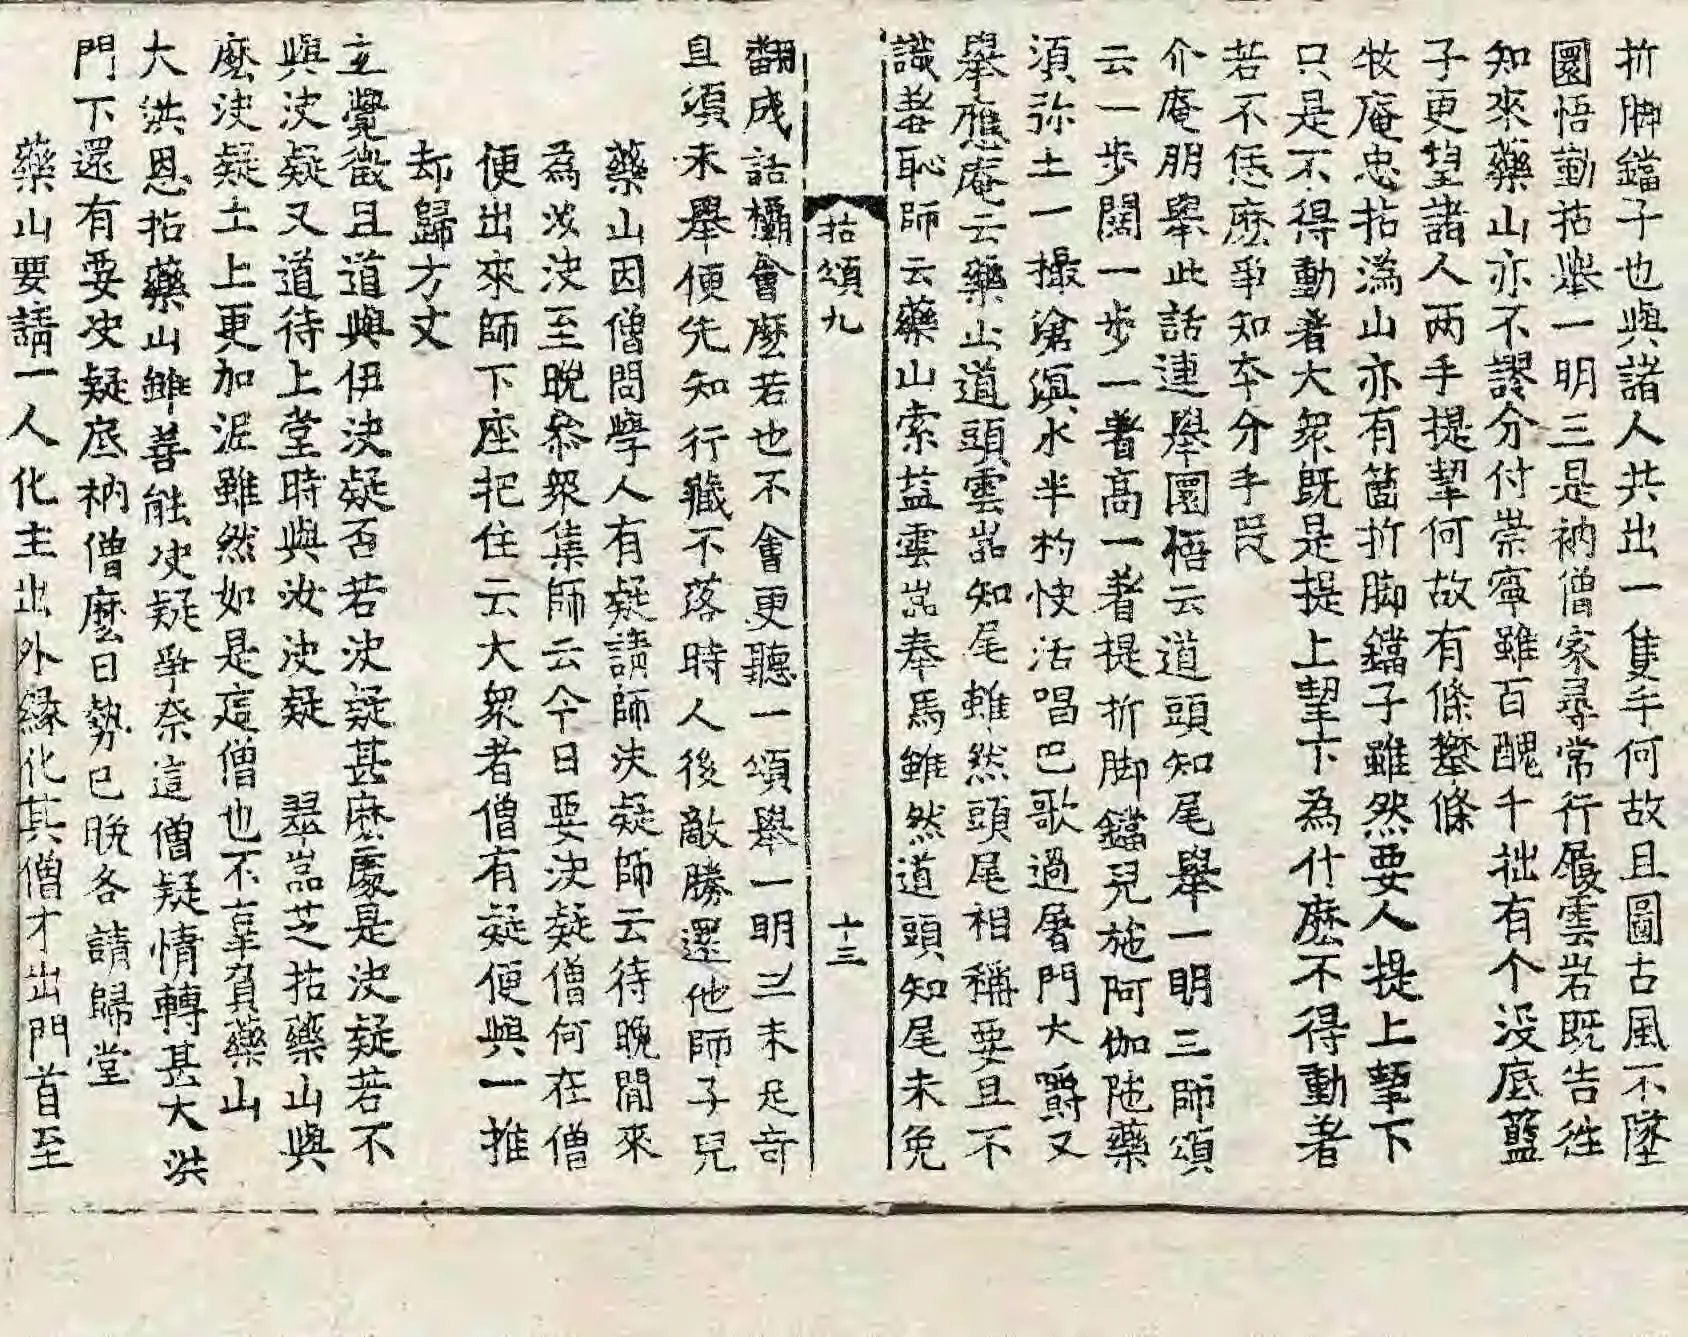 折脚鐺子也與諸人共出一隻手何故且圖古風不墜
圜悟勤拈舉一明三是衲僧家尋常行履雲岩既告徃
知來藥山亦不謬分付崇寧雖百醜千拙有个没底籃
子更望諸人两手提挈何故有條攀條
牧庵忠拈溈山亦有箇折脚鐺子雖然要人提上挈下
只是不得動着大衆既是提上挈下為什麽不得動着
若不恁麽爭知夲分手叚
介庵朋舉此話連舉圜悟云道頭知尾舉一明三師頌
云一歩闊一歩一着高一着提折脚鐺兒施阿伽陁藥
須弥土一撮滄溟水半杓快活唱巴歌過屠門大嚼又
舉應庵云藥山道頭雲嵓知尾雖然頭尾相稱要且不
識羞恥師云藥山索塩雲嵓奉馬雖然道頭知尾未免
拈頌九 十三
翻成話欛會麽若也不會更聽一頌舉一明三未足竒
且須未舉便先知行藏不落時人後敵勝還他師子兒
藥山因僧問學人有疑請師决疑師云待晚間來
為汝决至晚叅衆集師云今日要决疑僧何在僧
便出來師下座把住云大衆者僧有疑便與一推
却歸方丈
玄覺徵且道與伊决疑否若决疑甚麽處是决疑若不
與决疑又道待上堂時與汝决疑 翠嵓芝拈藥山與
麽决疑土上更加泥雖然如是這僧也不辜負藥山
大洪恩拈藥山雖善能决疑爭奈這僧疑情轉甚大洪
門下還有要决疑底衲僧麽日勢已晚各請歸堂
藥山要請一人化主出外緣化其僧才出門首至